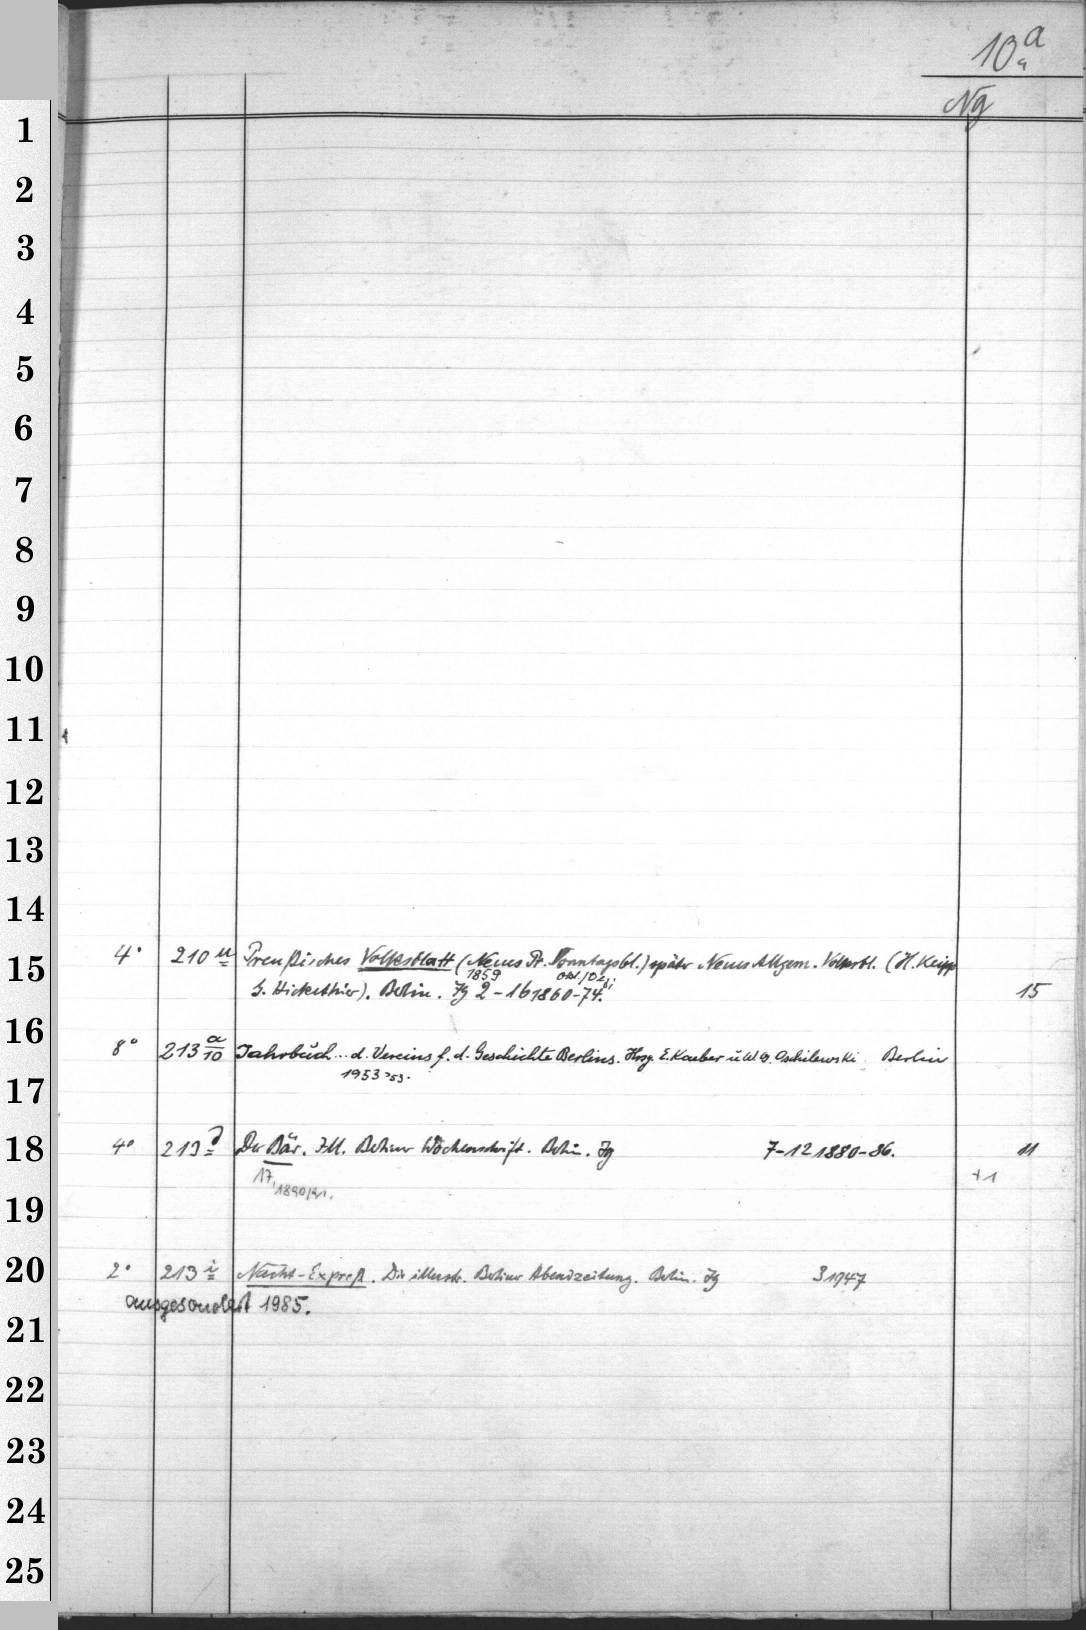 10a
Ng
1
2
3
4
5
6
7
8
9
10
11
12
13
14
4° 210 u Preußisches Volksblatt (Neues Pr. Sonntagsbl.) später Neues Allgem. Volksbl. (H. Keipp
15
1859 Okt./Dez.;
G. Hickethier). Berlin. Jg 2-16 1860-74. 15
16
8° 213 a/10 Jahrbuch... d. Vereins f. d. Geschichte Berlins. Hrsg. E. Kaeber u. W. G. Oschilewski Berlin
1953
17
18
4° 213 Der Bär. Ill. Berliner Wochenschrift. Berlin. Jg 7-12 1880-86. 11
17, 1890/91. +1
19
20
2° 213 i Nacht-Expreß. Die illustr. Berliner Abendzeitung. Berlin. Jg 3 1947
ausgesondert 1985.
21
22
23
24
25